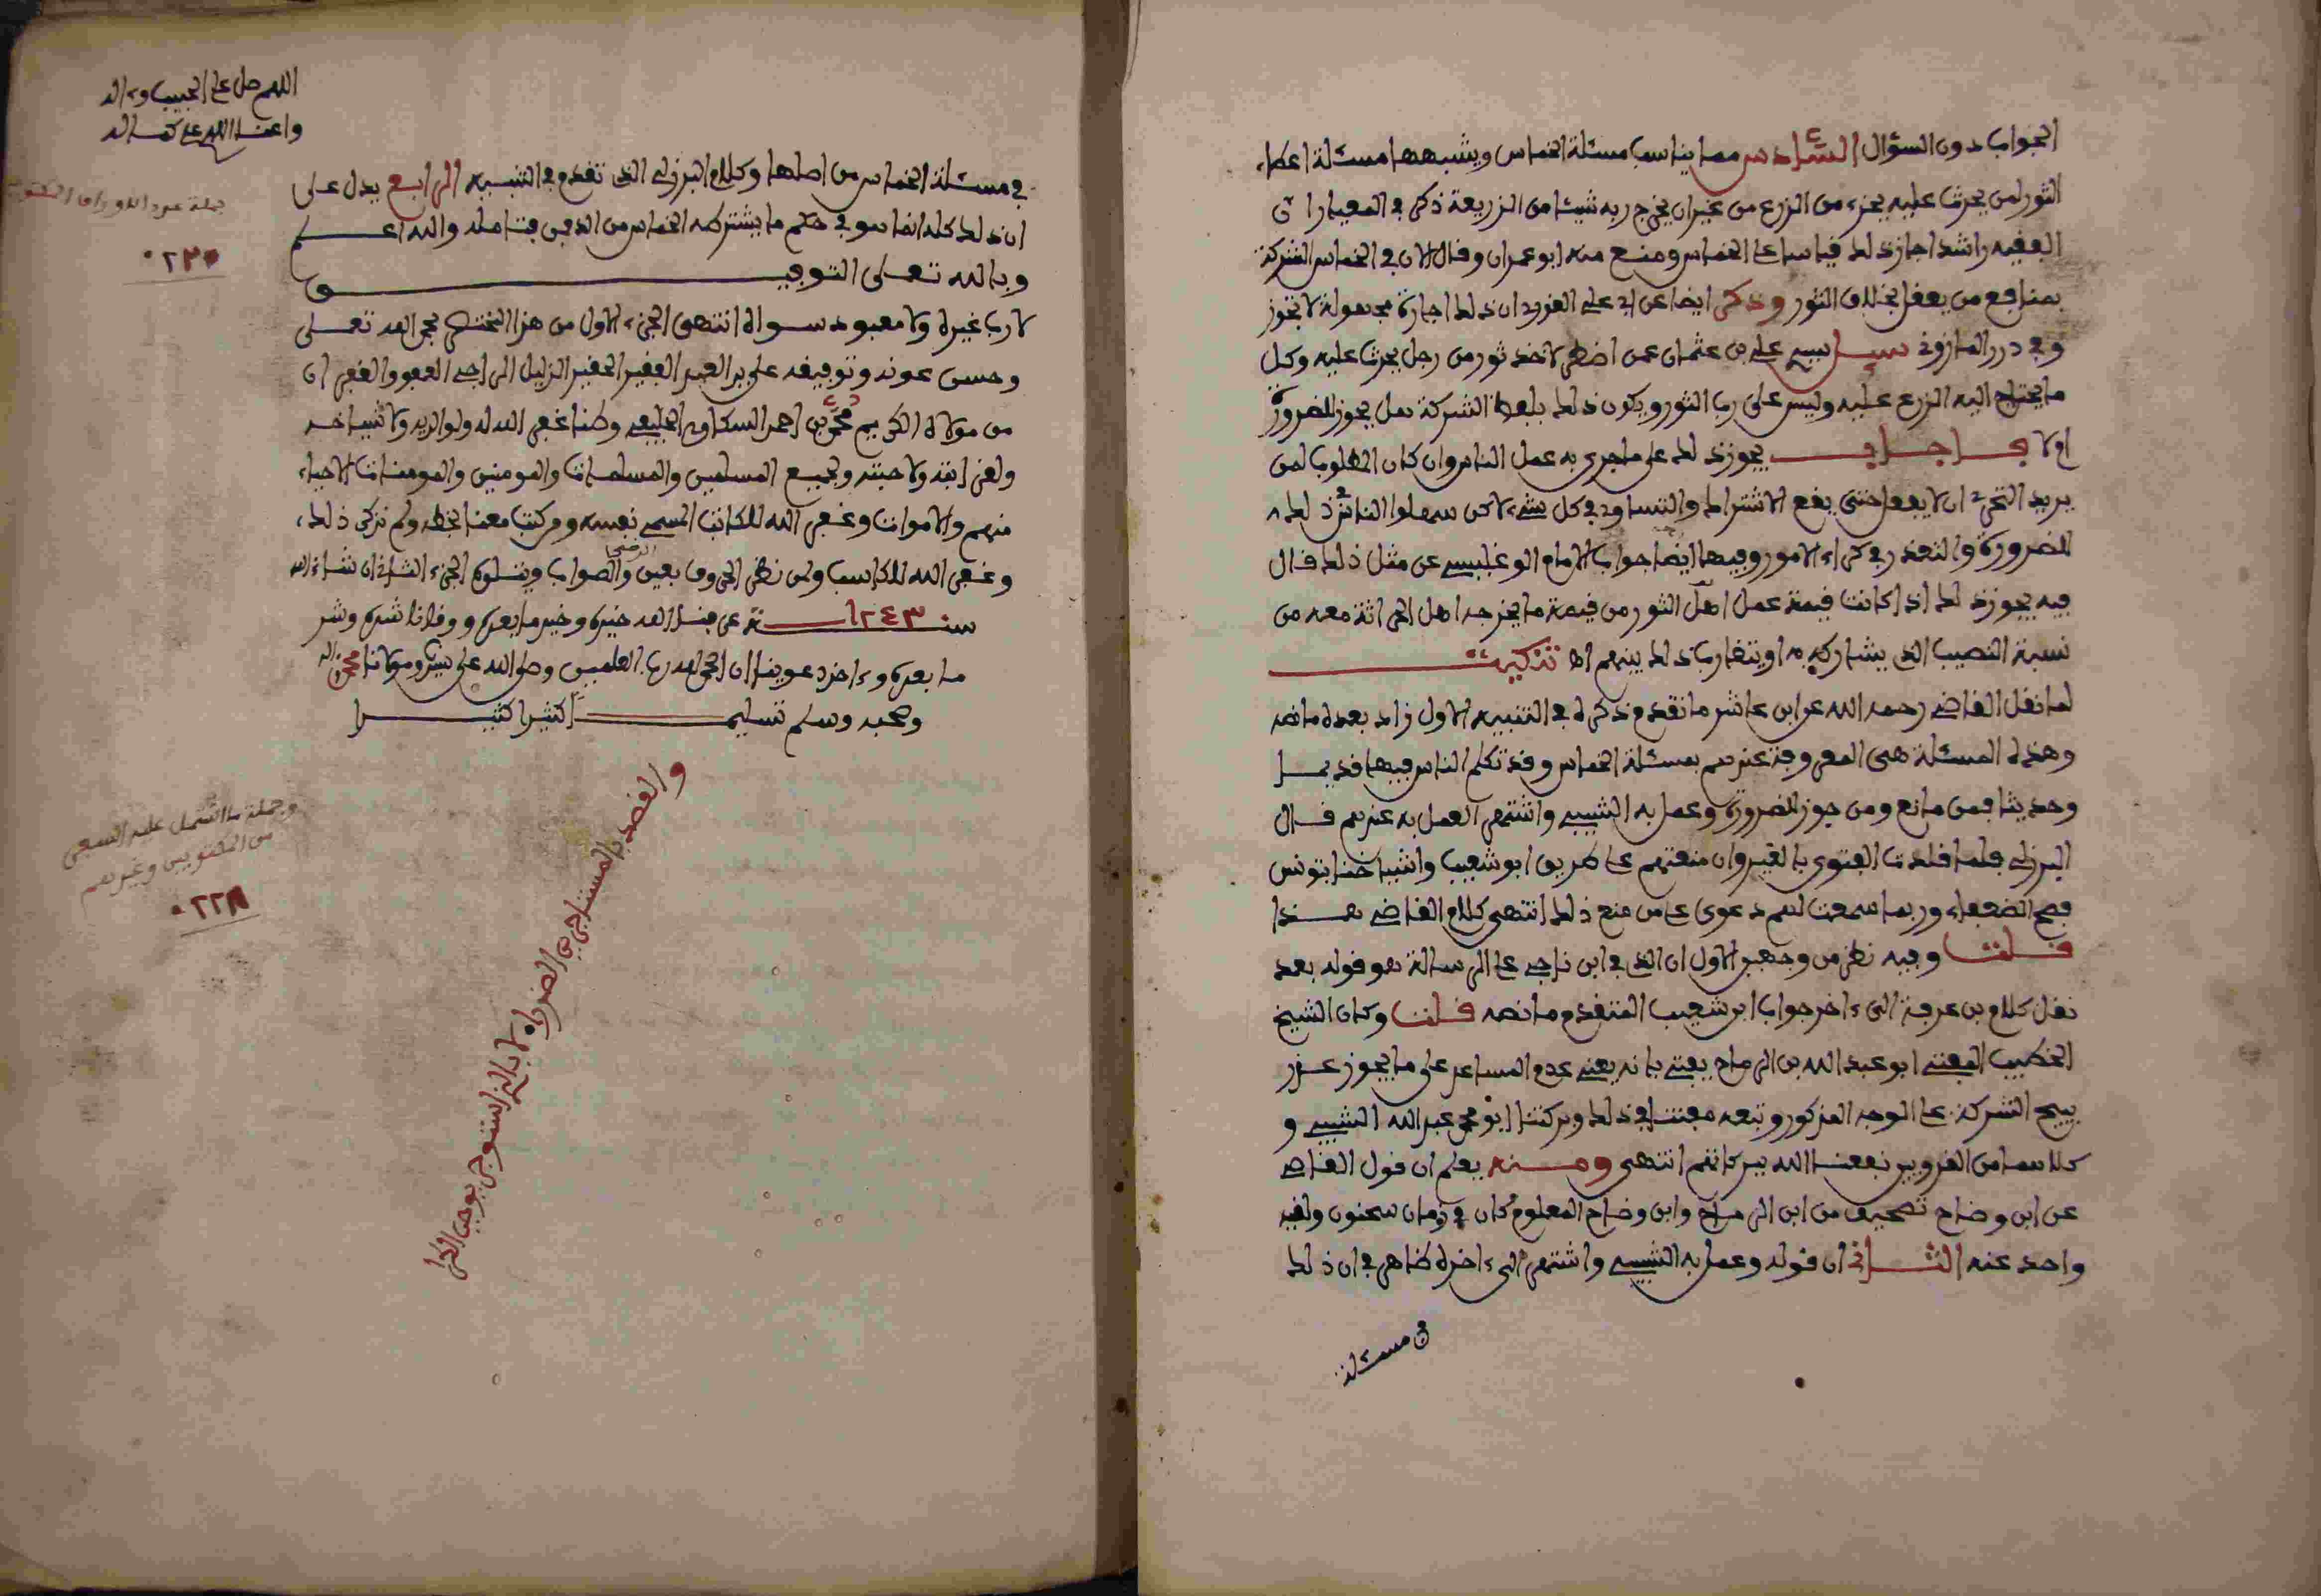 الجواب دون السؤال السادس مما يناسب مسئلة الخماس ويشبهها مسئلة اعطاء
الثور لمن يحرث عليه بجزء من الزرع من غير ان يخرج ربه شيئا من الزريعة ذكر في المعيار ان
الفقيه راشد اجاز ذلك قياسا على الخماس ومنع منه ابو عمران وقال لان في الخماس الشركة
بمنافع من يعقل بخلاف الثور وذكر ايضا عن ابي علي القروي ان ذلك اجارة مجهولة لا تجوز
وفي درر المازوني سئل علي بن عثمان عمن اضطر لاخذ ثور من رجل يحرث عليه وكل
ما يحتاج اليه الزرع عليه وليس على رب الثور ويكون ذلك بلفظ الشركة هل يجوز للضرورة
ام لا فاجاب يجوز ذلك على ما جرى به عمل الناس وان كان المطلوب لمن
يريد التحري ان لا يفعل حتى يقع الاشتراط والتساوي في كل شيء لاكن سهلوا الناس ذلك
للضرورة والتعذر في كراء الامور وفيها ايضا جواب الامام الوغليسي عن مثل ذلك قال
فيه يجوز ذلك اذا كانت قيمة عمل اهل الثور من قيمة ما يخرجه اهل الحراثة معه من
نسبة النصيب الذي يشاركه به او يتقارب ذلك بينهم اه تذكيرت
لما نقل القاضي رحمه الله عن ابن عاشر ما تقدم ذكره في التنبيه الاول زاد بعده ما نصه
وهذه المسئلة هي المعروفة عندهم بمسئلة الخماس وقد تكلم الناس فيها قديما
وحديثا فمن مانع ومن جوز للضرورة وعمل به الشبيبي واشتهر العمل به عندهم قال
البرزلي فلما قلدت الفتوى بالقيروان منعتهم على طريق ابو شعيب واشياخنا بتونس
فضج الضعفاء وربما سمعت لهم دعوى على من منع ذلك انتهى كلام القاضي هنا
قلت وفيه نظر من وجهين الاول ان الذي في ابن ناجي على الرسالة هو قوله بعد
نقل كلام بن عرفة الى ءاخر جواب ابن شعيب المتقدم ما نصه قلت وكان الشيخ
الخطيب المفتي ابو عبد الله بن الرماح يفتي بانه يعني عدم المساعد على ما يجوز عذر
يبيح الشركة على الوجه المذكور وتبعه مفتيا في ذلك وبركتنا ابو محمد عبد الله الشبيبي و
كلاهما من القرويين نفعنا الله ببركاتهم انتهى ومنه يعلم ان قول القاضي
عن ابن وضاح تصحيف من ابن الرماح وابن وضاح المعلوم كان في زمان سحنون ولقيه
واخذ عنه الثاني ان قوله وعمل به الشبيبي واشتهر الى ءاخره ظاهر في ان ذلك
في مسئلة
اللهم صل على الحبيب وءاله
في مسئلة الخماس من اصلها وكلام البرزلي الذي تقدم في التنبيه الرابع يدل على
ان ذلك كله انما هو في حكم ما يشترطه الخماس من الدفين فتامله والله اعلم
وبالله تعلى التوفيق
لا رب غيره ولا معبود سواه انتهى الجزء الاول من هذا المختصر بحمد الله تعلى
وحسن عونه وتوفيقه على يد العبد الفقير الحقير الذليل الراجي العفو والغفران
من مولاه الكريم محمد بن احمد السكاوي الخليفي وطنا غفر الله له ولوالديه ولاشياخه
ولقرابته ولاحبته ولجميع المسلمين والمسلمات والمومنين والمومنات الاحياء
منهم والاموات وغفر الله للكاتب المسمي نفسه ومن كتب معنا بخطه ولم نذكر ذلك
وغفر الله للكاسب ولمن نظر الحروف بعين الرضى والصواب ويتلوه الجزء الثاني ان شاء الله
سنة ١٢٤٣ عرفنا الله خيره وخير ما بعده ووقانا شره وشر
ما بعده وءاخر دعوينا ان الحمد لله رب العلمين وصلى الله على سيدنا ومولانا محمد وءاله
وصحبه وسلم تسليما كثيرا كثيرا
جملة عدد الاوراق المكتوبة
٠٢٢٠
وجملة ما اشتمل عليه السفر
من المكتوبين وغيرهم